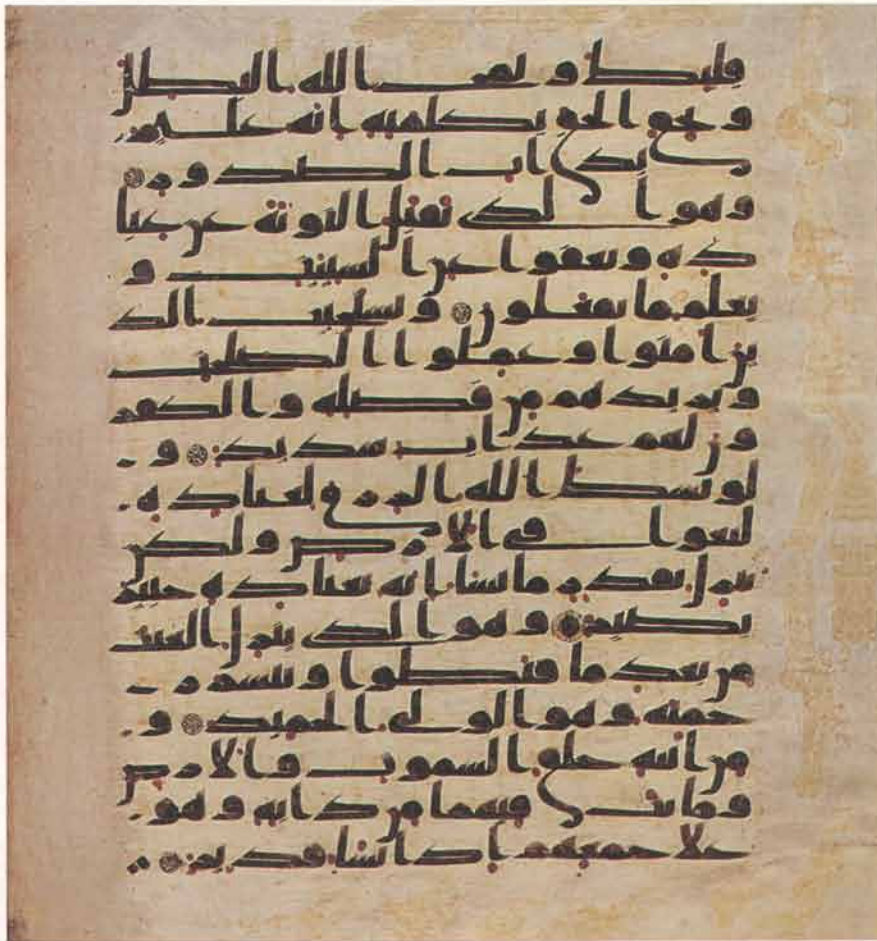 قلبك و يمح الله البطل
و يحق الحق بكلمته انه عليم
بذات الصدور
و هو الذي يقبل التوبة عن عبا
ده و يعفوا عن السيئت و
يعلم ما تفعلون و يستجيب الذ
ين امنوا و عملوا الصلحت
و يزيدهم من فضله و الكفر
ون لهم عذاب شديد و
لو بسط الله الرزق لعباده
لبغوا في الارض و لكن
ينزل بقدر ما يشا انه بعباده خبير
بصير و هو الذي ينزل الغيث
من بعد ما قنطوا و ينشر ر
حمته و هو الولي الحميد و
من ايته خلق السموت و الارض
و ما بث فيهما من دابة و هو
علا جمعهم اذا يشا قدير